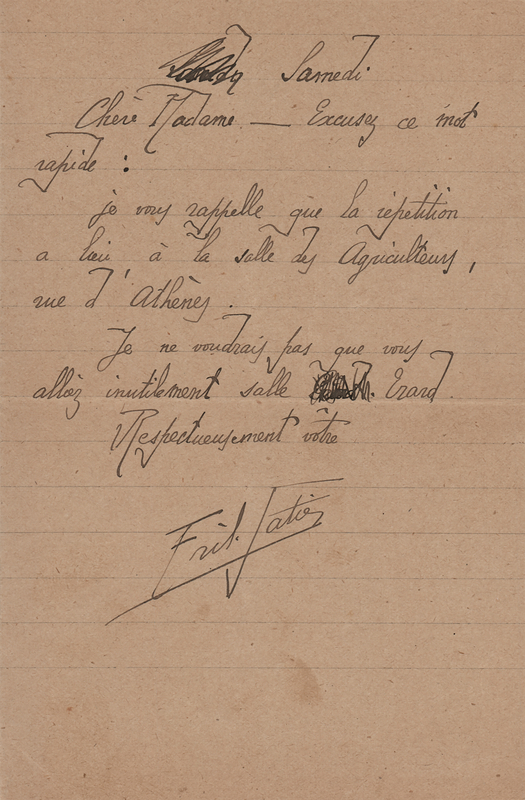 Samedi
Chère Madame — Excusez ce mot
rapide :
je vous rappelle que la répétition
a lieu à la salle des Agriculteurs,
rue d'Athènes.
Je ne voudrais pas que vous
alliez inutilement salle Erard.
Respectueusement vôtre
Erik Satie